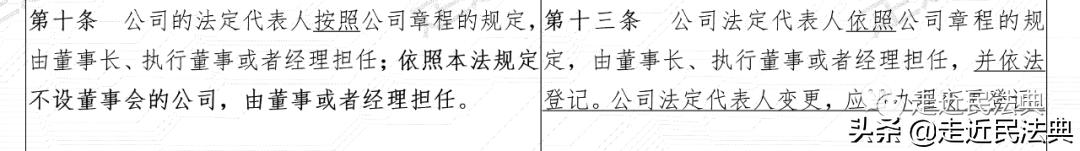 第十条　公司的法定代表人按照公司章程的规定，
由董事长、执行董事或者经理担任；依照本法规定
不设董事会的公司，由董事或者经理担任。
第十三条　公司法定代表人依照公司章程的规
定，由董事长、执行董事或者经理担任，并依法
登记。公司法定代表人变更，应当办理变更登记
走近民法典
头条@走近民法典